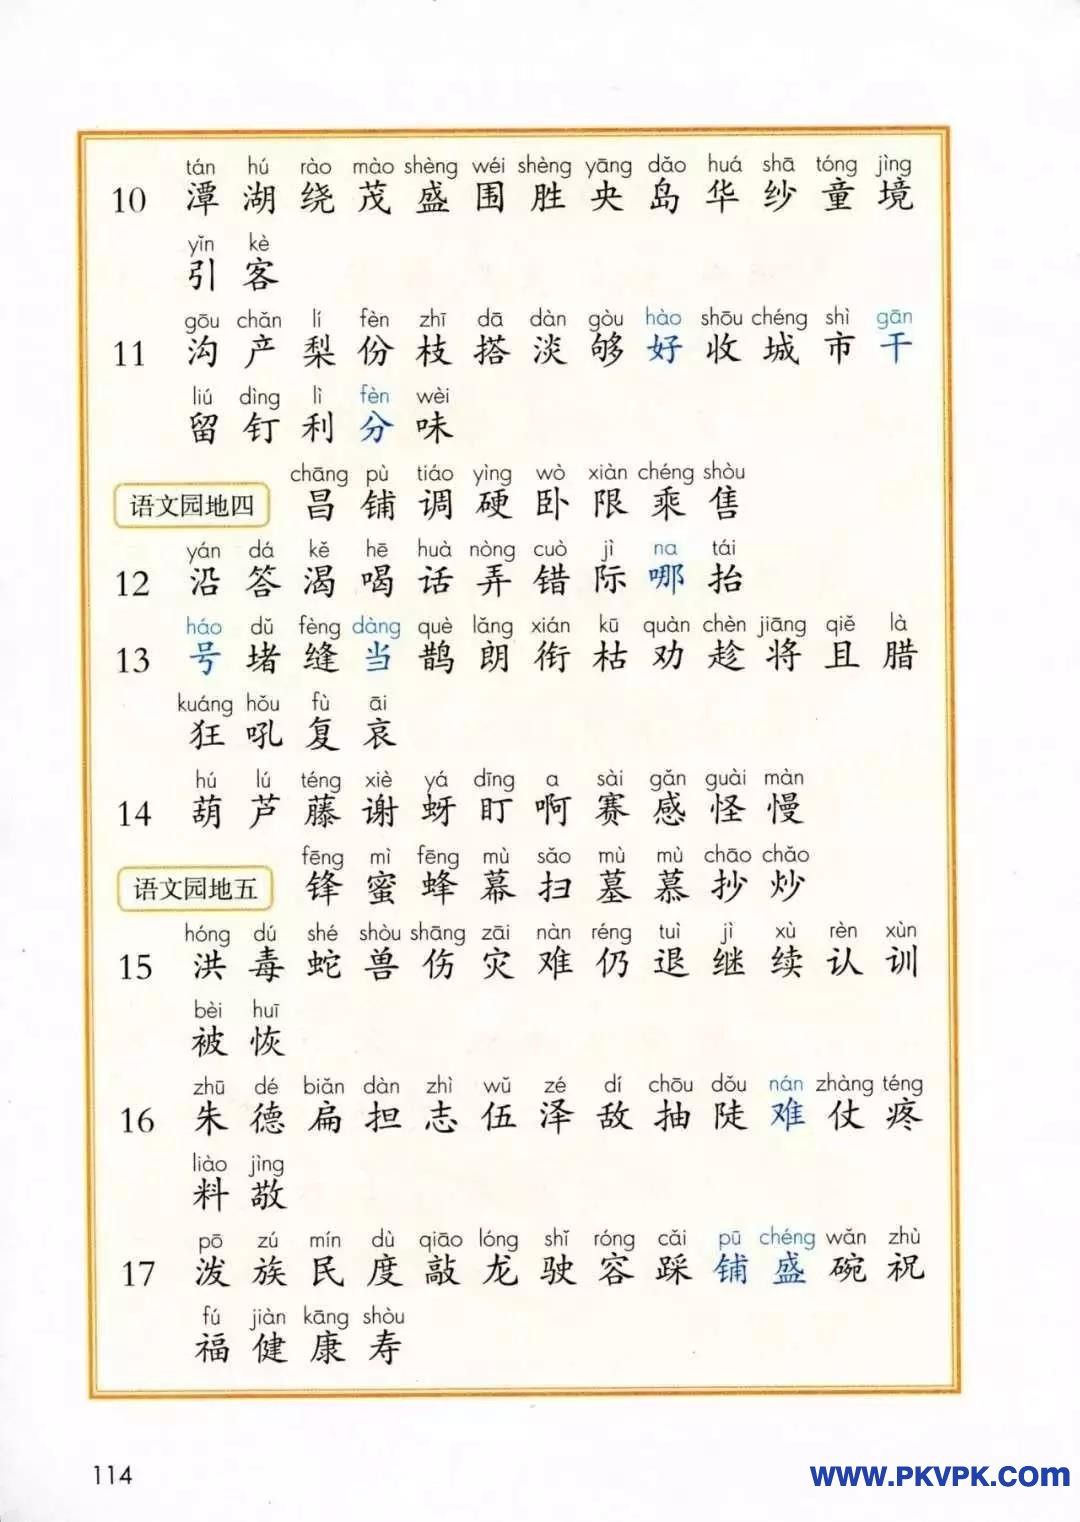 tán hú rào mào shèng wéi shèng yāng dǎo huá shā tóng jìng
10 潭 湖 绕 茂 盛 围 胜 央 岛 华 纱 童 境
yǐn kè
引 客
gōu chǎn lí fèn zhī dā dàn gòu hào shōu chéng shì gān
11 沟 产 梨 份 枝 搭 淡 够 好 收 城 市 干
liú dìng lì fèn wèi
留 钉 利 分 味
chāng pù tiáo yìng wò xiàn chéng shòu
语文园地四 昌 铺 调 硬 卧 限 乘 售
yán dá kě hē huà nòng cuò jì na tái
12 沿 答 渴 喝 话 弄 错 际 哪 抬
háo dǔ fèng dàng què lǎng xián kū quàn chèn jiāng qiě là
13 号 堵 缝 当 鹊 朗 衔 枯 劝 趁 将 且 腊
kuáng hǒu fù āi
狂 吼 复 哀
hú lú téng xiè yá dīng a sài gǎn guài màn
14 葫 芦 藤 谢 蚜 盯 啊 赛 感 怪 慢
fēng mì fēng mù sǎo mù mù chāo chǎo
语文园地五 锋 蜜 蜂 幕 扫 墓 慕 抄 炒
hóng dú shé shòu shāng zāi nàn réng tuì jì xù rèn xùn
15 洪 毒 蛇 兽 伤 灾 难 仍 退 继 续 认 训
bèi huī
被 恢
zhū dé biǎn dàn zhì wǔ zé dí chōu dǒu nán zhàng téng
16 朱 德 扁 担 志 伍 泽 敌 抽 陡 难 仗 疼
liào jìng
料 敬
pō zú mín dù qiāo lóng shǐ róng cǎi pū chéng wǎn zhù
17 泼 族 民 度 敲 龙 驶 容 踩 铺 盛 碗 祝
fú jiàn kāng shòu
福 健 康 寿
114
www.PKVPK.com